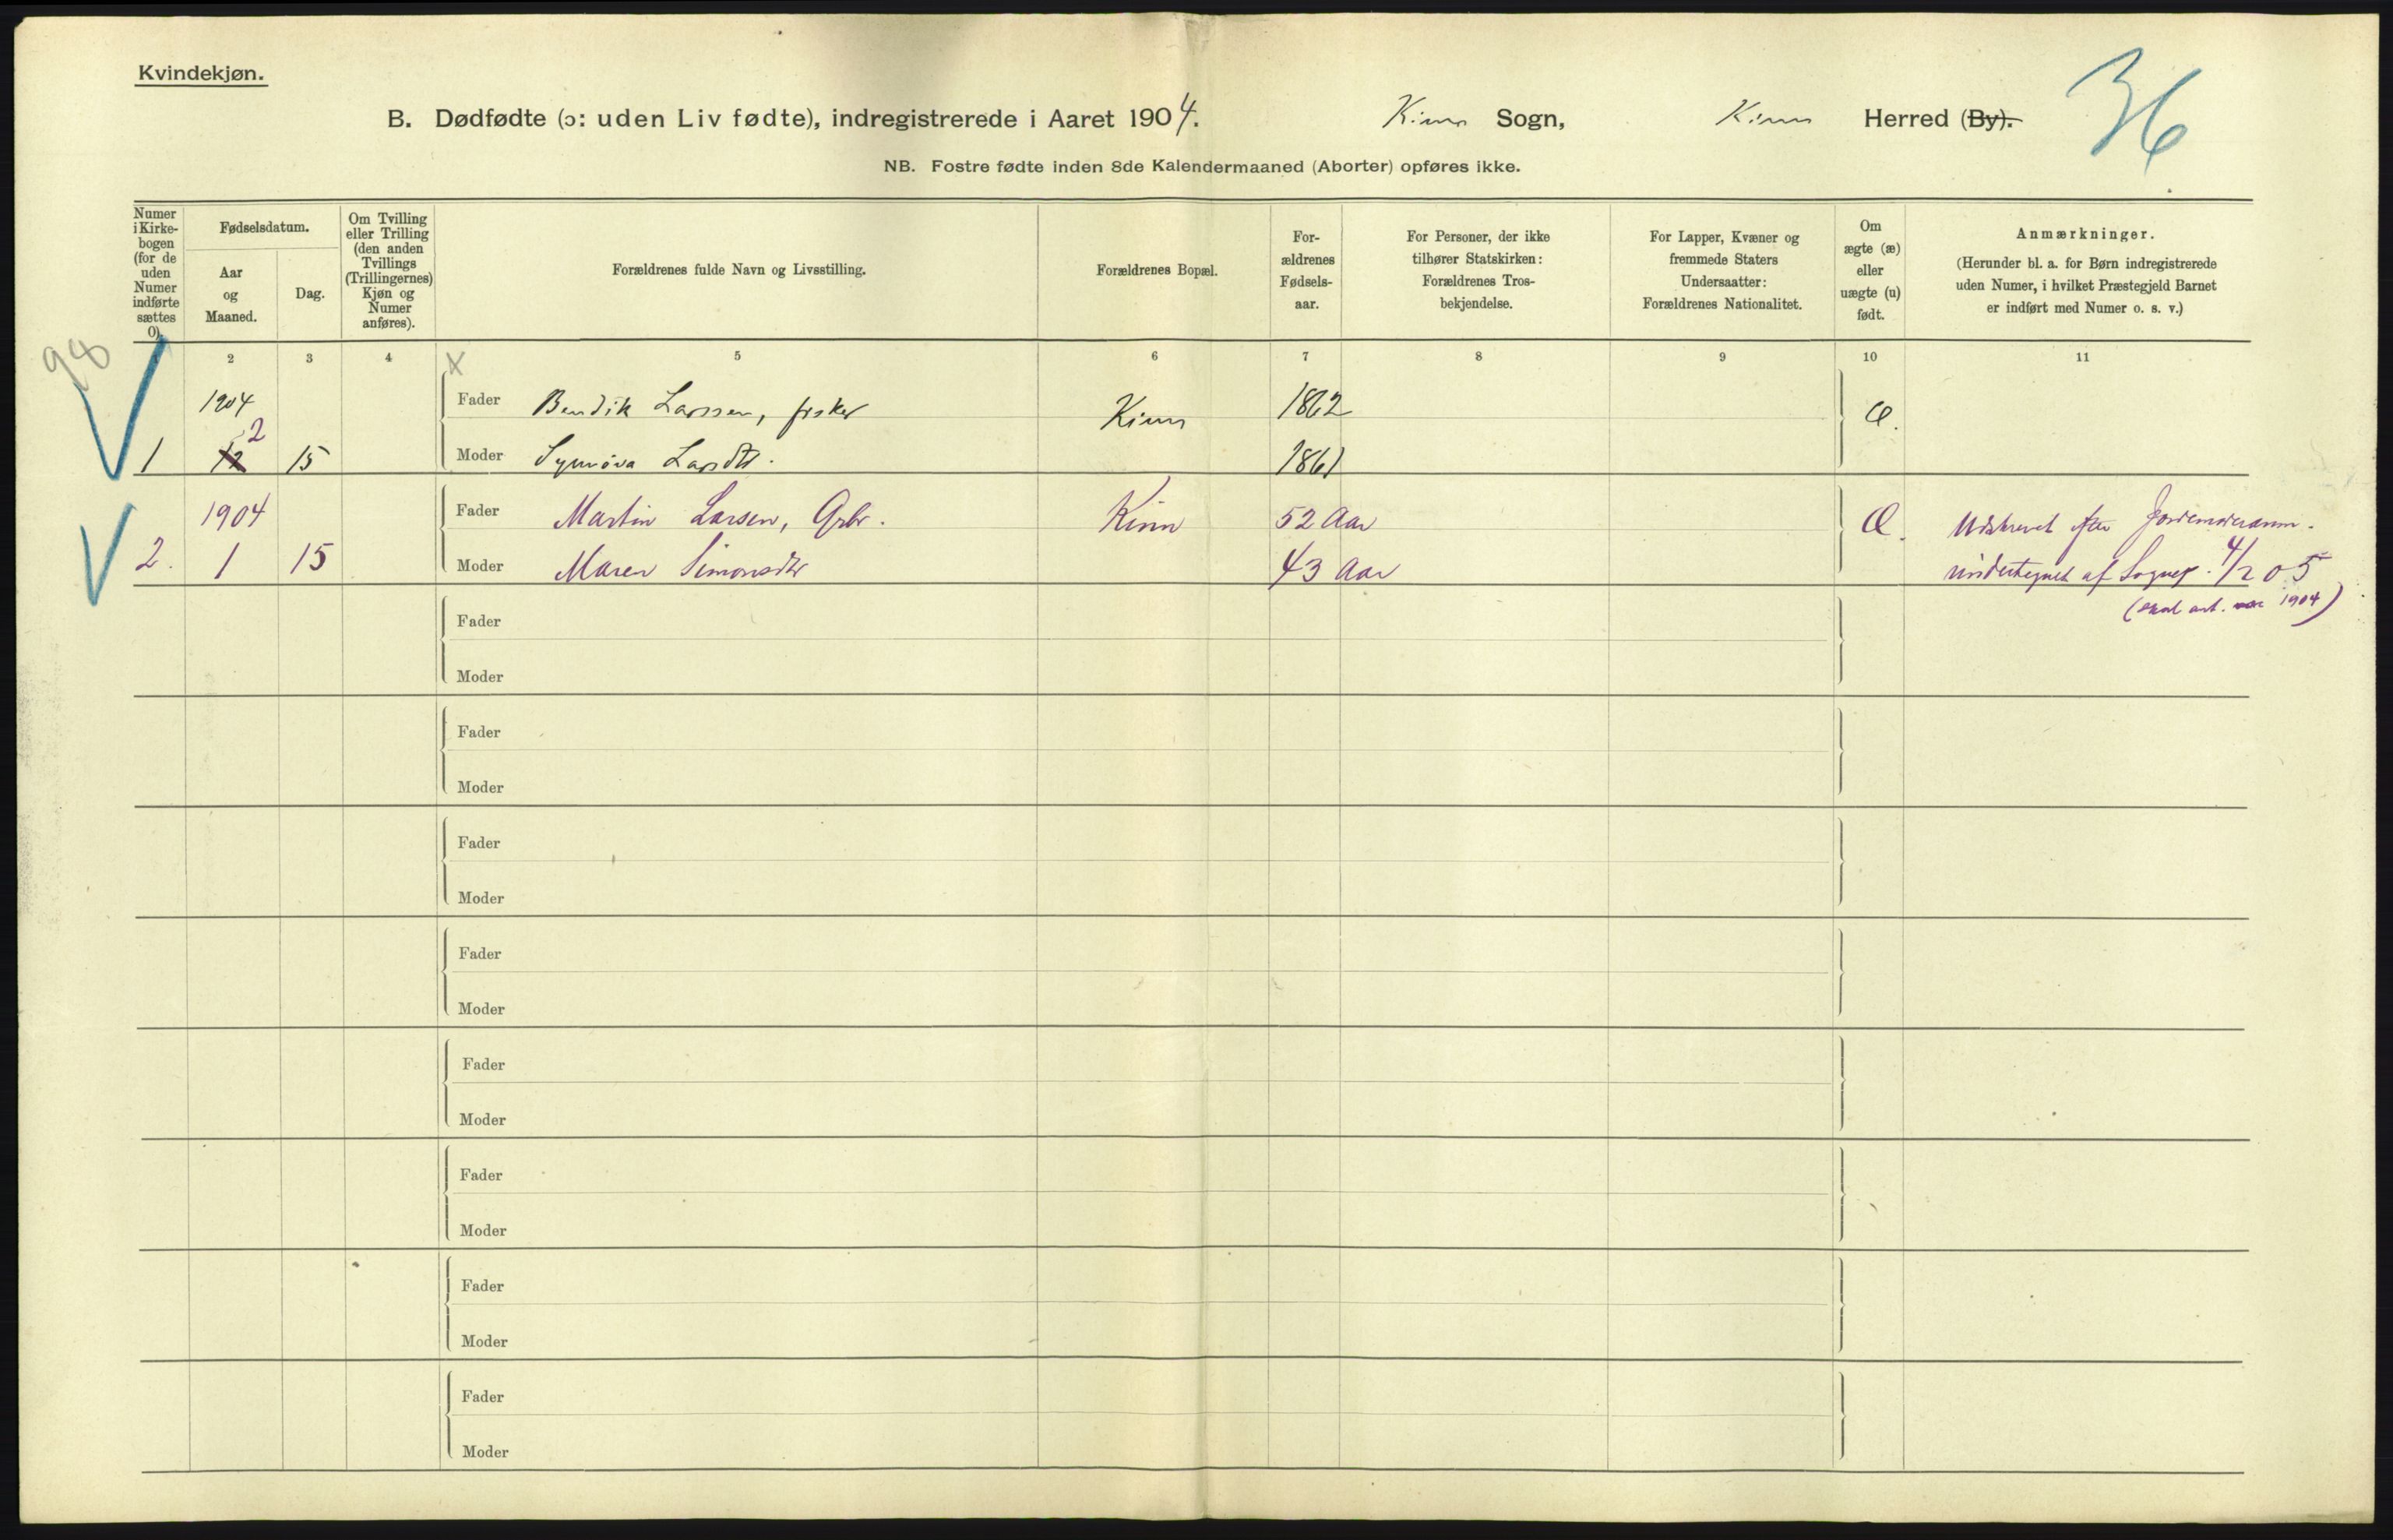 Kvindekjøn.
36
B. Dødfødte (ɔ: uden Liv fødte), indregistrerede i Aaret 1904. Kinn Sogn, Kinn Herred (By).
NB. Fostre fødte inden 8de Kalendermaaned (Aborter) opføres ikke.
Numer
i Kirke-
bogen
(for de
uden
Numer
indførte
sættes
0).
Fødselsdatum.
Aar
og
Maaned.
Dag.
Om Tvilling
eller Trilling
(den anden
Tvillings
(Trillingernes)
Kjøn og
Numer
anføres).
Forældrenes fulde Navn og Livsstilling.
Forældrenes Bopæl.
For-
ældrenes
Fødsels-
aar.
For Personer, der ikke
tilhører Statskirken:
Forældrenes Tros-
bekjendelse.
For Lapper, Kvæner og
fremmede Staters
Undersaatter:
Forældrenes Nationalitet.
Om
ægte (æ)
eller
uægte (u)
født.
Anmærkninger.
(Herunder bl. a. for Børn indregistrerede
uden Numer, i hvilket Præstegjeld Barnet
er indført med Numer o. s. v.)
1 2 3 4 5 6 7 8 9 10 11
98
1904 Fader Bendik Larssen, fisker Kinn 1862 Æ.
2
1 12 15 Moder Synnøva Larsdtr. 1861
1904 Fader Martin Larsen, Grbr. Kinn 52 Aar Æ. Udskrevet efter Jordemoderanm.
2. 1 15 Moder Maren Simonsdtr 43 Aar undertegnet af Sognep. 4/2 05
1904)
Fader
Moder
Fader
Moder
Fader
Moder
Fader
Moder
Fader
Moder
Fader
Moder
Fader
Moder
Fader
Moder